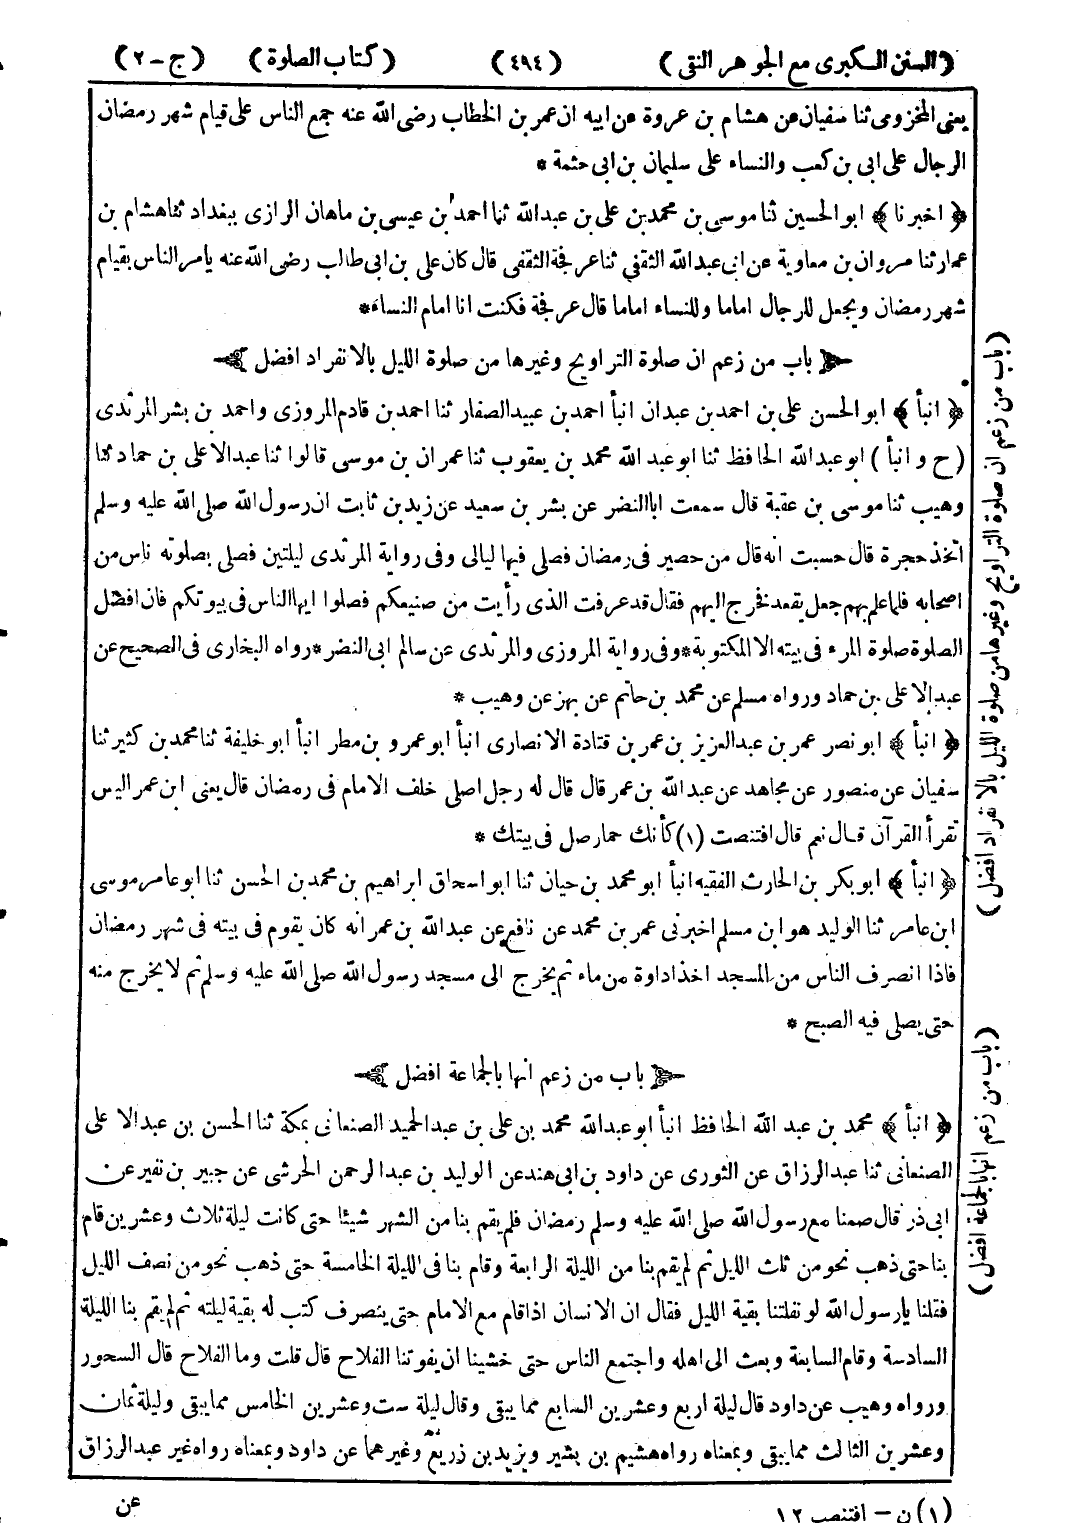 (السنن الكبرى مع الجوهر النقى) (٤٩٤) (كتاب الصلوة) (ج-٢)
يعنى المخزومى ثنا سفيان عن هشام بن عروة عن ابيه ان عمر بن الخطاب رضى الله عنه جمع الناس على قيام شهر رمضان
الرجال على ابى بن كعب والنساء على سليمان بن ابى حثمة *
﴿ اخبرنا ﴾ ابو الحسين ثنا موسى بن محمد بن على بن عبدالله ثنا احمد بن عيسى بن ماهان الرازى ببغداد ثنا هشام بن
عمار ثنا مروان بن معاوية عن ابى عبدالله الثقفى ثنا عرفجة الثقفى قال كان على بن ابى طالب رضى الله عنه يامر الناس بقيام
شهر رمضان ويجعل للرجال اماما وللنساء اماما قال عرفجة فكنت انا امام النساء *
باب من زعم ان صلوة التراويح وغيرها من صلوة الليل بالانفراد افضل
﴿ انبأ ﴾ ابو الحسن على بن احمد بن عبدان انبأ احمد بن عبيد الصفار ثنا احمد بن قادم المروزى واحمد بن بشر المرثدى
(ح وانبأ) ابو عبدالله الحافظ ثنا ابو عبد الله محمد بن يعقوب ثنا عمران بن موسى قالوا ثنا عبدالاعلى بن حماد ثنا
وهيب ثنا موسى بن عقبة قال سمعت ابا النضر عن بشر بن سعيد عن زيد بن ثابت ان رسول الله صلى الله عليه وسلم
اتخذ حجرة قال حسبت انه قال من حصير فى رمضان فصلى فيها ليالى وفى رواية المرثدى ليلتين فصلى بصلوته ناس من
اصحابه فلما علم بهم جعل يقعد فخرج اليهم فقال قد عرفت الذى رأيت من صنيعكم فصلوا ايها الناس فى بيوتكم فان افضل
الصلوة صلوة المرء فى بيته الا المكتوبة * وفى رواية المروزى والمرثدى عن سالم ابى النضر * رواه البخارى فى الصحيح عن
عبدالاعلى بن حماد ورواه مسلم عن محمد بن حاتم عن بهز عن وهيب *
﴿ انبأ ﴾ ابو نصر عمر بن عبدالعزيز بن عمر بن قتادة الانصارى انبأ ابو عمرو بن مطر انبأ ابو خليفة ثنا محمد بن كثير ثنا
سفيان عن منصور عن مجاهد عن عبدالله بن عمر قال قال له رجل اصلى خلف الامام فى رمضان قال يعنى ابن عمر اليس
تقرأ القرآن قال نعم قال افتنصت (١) كأنك حمار صل فى بيتك *
﴿ انبأ ﴾ ابو بكر بن الحارث الفقيه انبأ ابو محمد بن حيان ثنا ابو اسحاق ابراهيم بن محمد بن الحسن ثنا ابو عامر موسى
ابن عامر ثنا الوليد هو ابن مسلم اخبرنى عمر بن محمد عن نافع عن عبدالله بن عمر انه كان يقوم فى بيته فى شهر رمضان
فاذا انصرف الناس من المسجد اخذ اداوة من ماء ثم يخرج الى مسجد رسول الله صلى الله عليه وسلم ثم لا يخرج منه
حتى يصلى فيه الصبح *
باب من زعم انها بالجماعة افضل
﴿ انبأ ﴾ محمد بن عبد الله الحافظ انبأ ابو عبدالله محمد بن على بن عبدالحميد الصنعانى بمكة ثنا الحسن بن عبدالاعلى
الصنعانى ثنا عبدالرزاق عن الثورى عن داود بن ابى هند عن الوليد بن عبدالرحمن الحرشى عن جبير بن نفير عن
ابى ذر قال صمنا مع رسول الله صلى الله عليه وسلم رمضان فلم يقم بنا من الشهر شيئا حتى كانت ليلة ثلاث وعشرين قام
بنا حتى ذهب نحو من ثلث الليل ثم لم يقم بنا من الليلة الرابعة وقام بنا فى الليلة الخامسة حتى ذهب نحو من نصف الليل
فقلنا يارسول الله لو نفلتنا بقية الليل فقال ان الانسان اذا قام مع الامام حتى ينصرف كتب له بقية ليلته ثم لم يقم بنا الليلة
السادسة وقام السابعة وبعث الى اهله واجتمع الناس حتى خشينا ان يفوتنا الفلاح قال قلت وما الفلاح قال السحور
ورواه وهيب عن داود قال ليلة اربع وعشرين السابع مما يبقى وقال ليلة ست وعشرين الخامس مما يبقى وليلة ثمان
وعشرين الثالث مما يبقى وبمعناه رواه هشيم بن بشير ويزيد بن زريع وغيرهما عن داود وبمعناه رواه غير عبدالرزاق
عن
(١) ن - افتنصب ١٢
(باب من زعم ان صلوة التراويح وغيرها من صلوة الليل بالانفراد افضل)
(باب من زعم انها بالجماعة افضل)